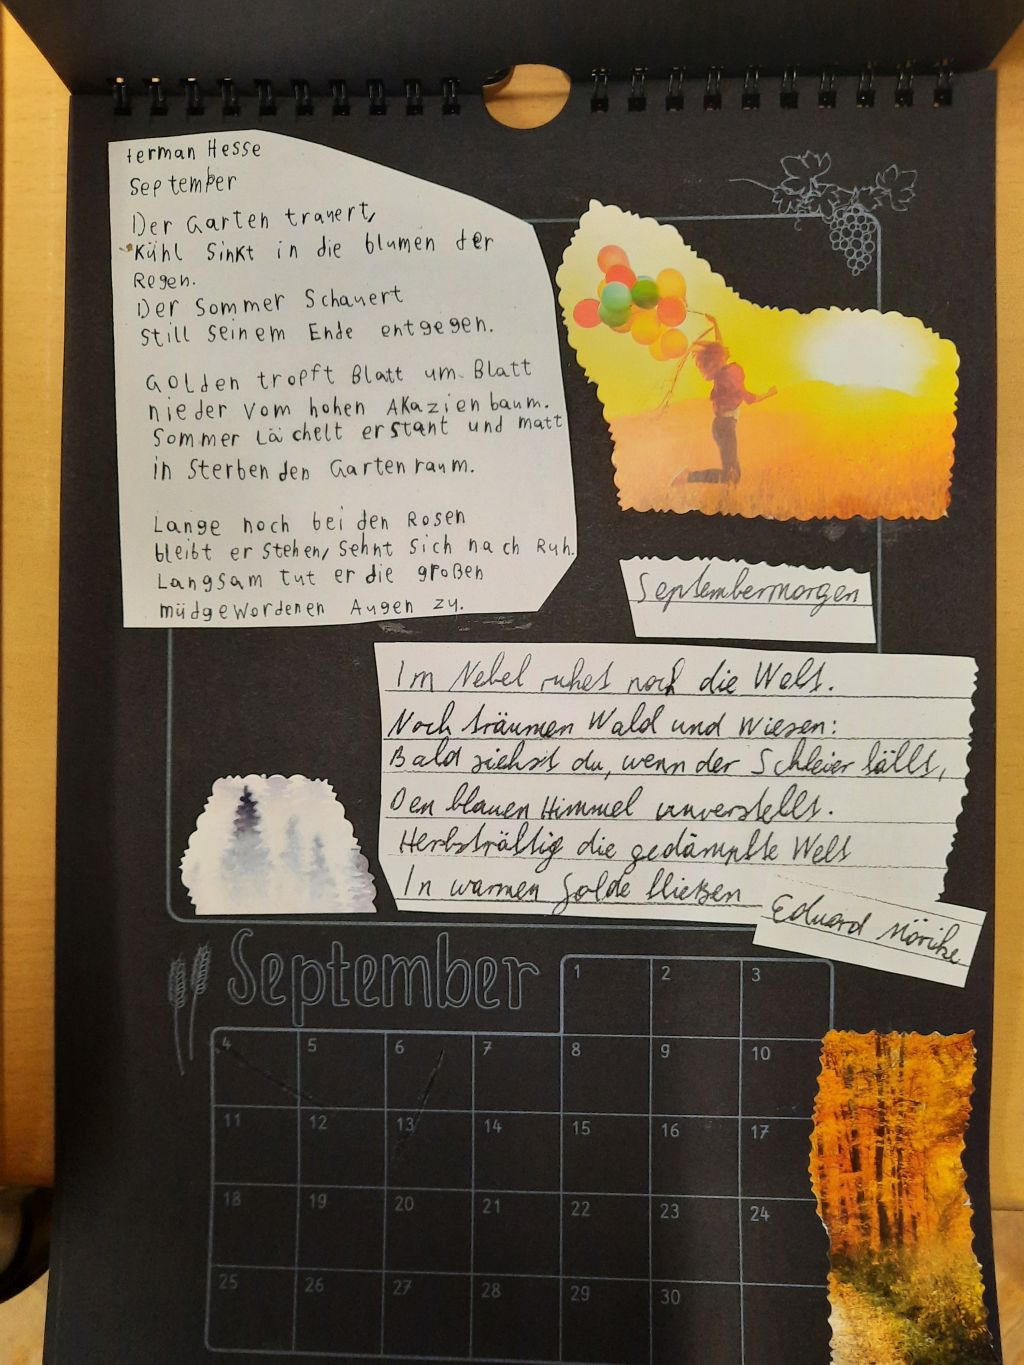 Herman Hesse
September
Der Garten trauert,
Kühl Sinkt in die blumen der
Regen.
Der Sommer Schauert
Still Seinem Ende entgegen.
Golden tropft Blatt um Blatt
nieder vom hohen Akazienbaum.
Sommer Lächelt erstant und matt
in Sterbenden Gartenraum.
Lange noch bei den Rosen
bleibt er stehen, Sehnt Sich nach Ruh.
Langsam tut er die großen
müdgewordenen Augen zu.
Septembermorgen
Im Nebel ruhet noch die Welt.
Noch träumen Wald und Wiesen:
Bald siehst du, wenn der Schleier fällt,
Den blauen Himmel unverstellt.
Herbstkräftig die gedämpfte Welt
In warmen Golde fließen
Eduard Mörike
September
1 2 3
4 5 6 7 8 9 10
11 12 13 14 15 16 17
18 19 20 21 22 23 24
25 26 27 28 29 30